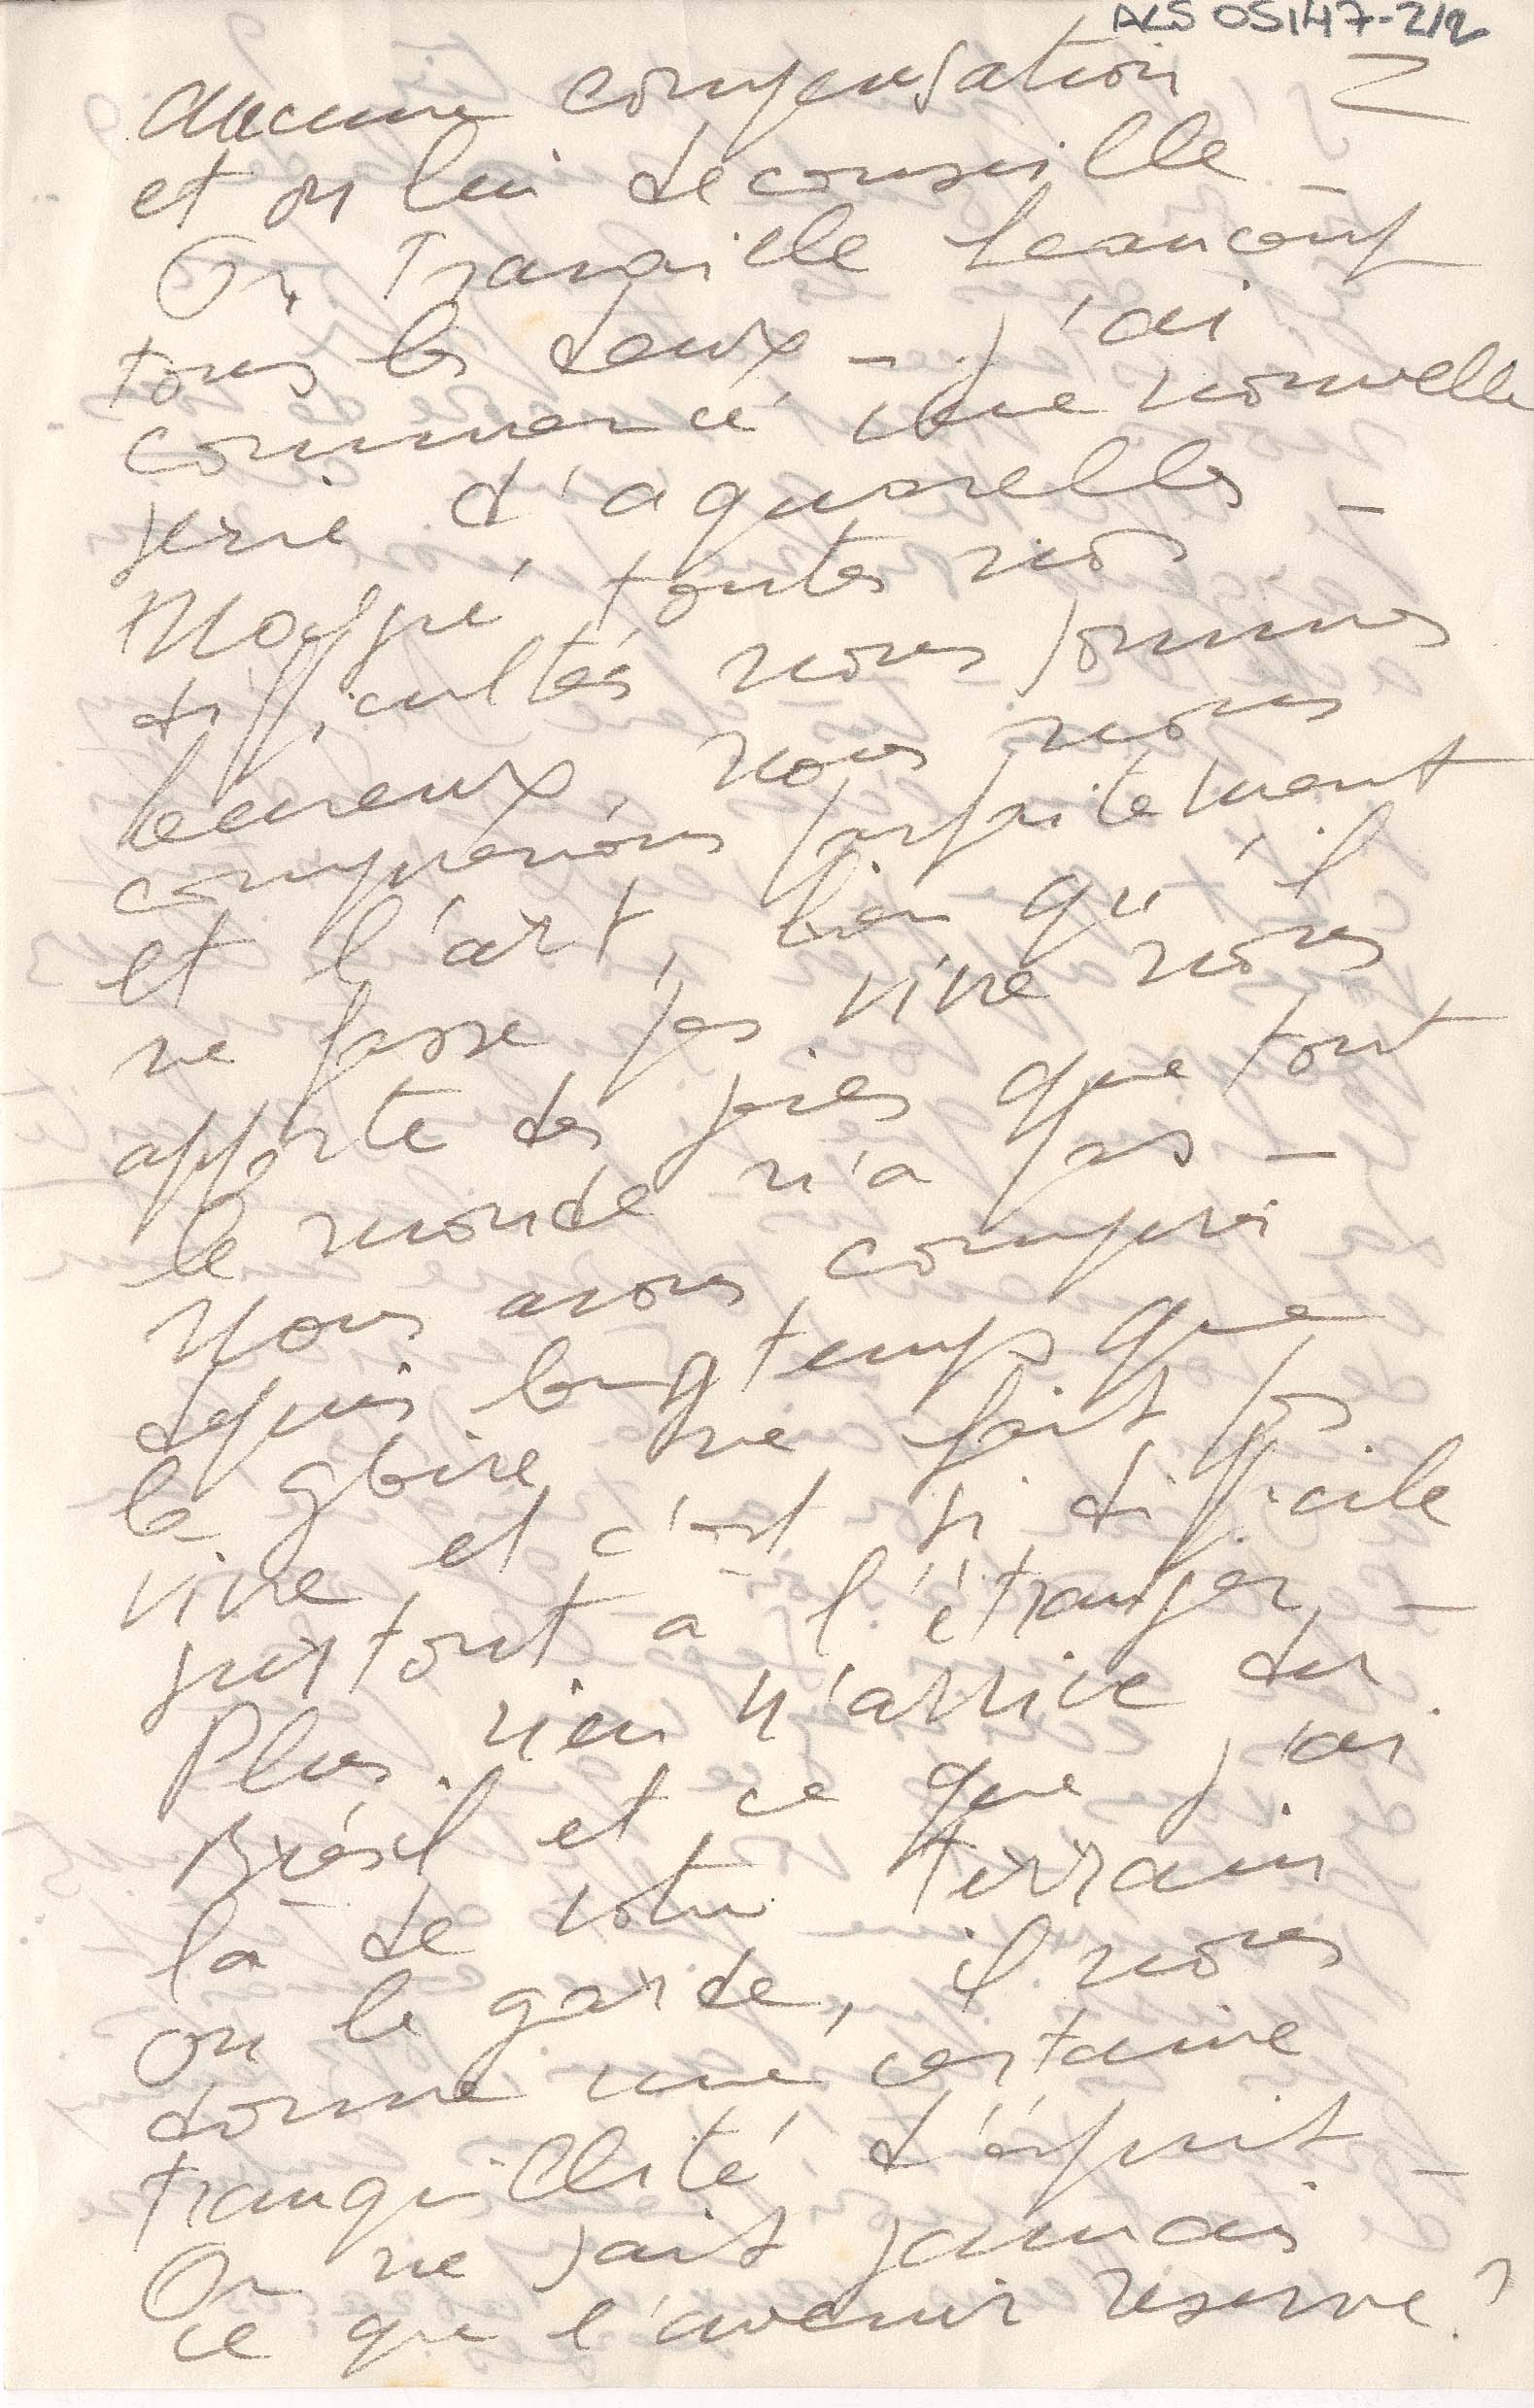 ALS 05147-2/2
2
aucune compensation
et on lui deconseille -
On travaille beaucoup
tous les deux - j'ai
commencé une nouvelle
serie d'aquarelles -
Malgré toutes nos
difficultés nous sommes
heureux, nous nous
comprenons parfaitement
et l'art, bien qu'il
ne fasse pas vivre nous
apporte des joies que tout
le monde n'a pas -
Nous avons compris
depuis longtemps que
la gloire ne fait pas
vivre et c'est si difficile
surtout à l'étranger -
Plus rien n'arrive du
Brésil et ce que j'ai
là de votre terrain
on le garde, il nous
donne une certaine
tranquillité d'esprit -
On ne sait jamais
ce que l'avenir réserve?